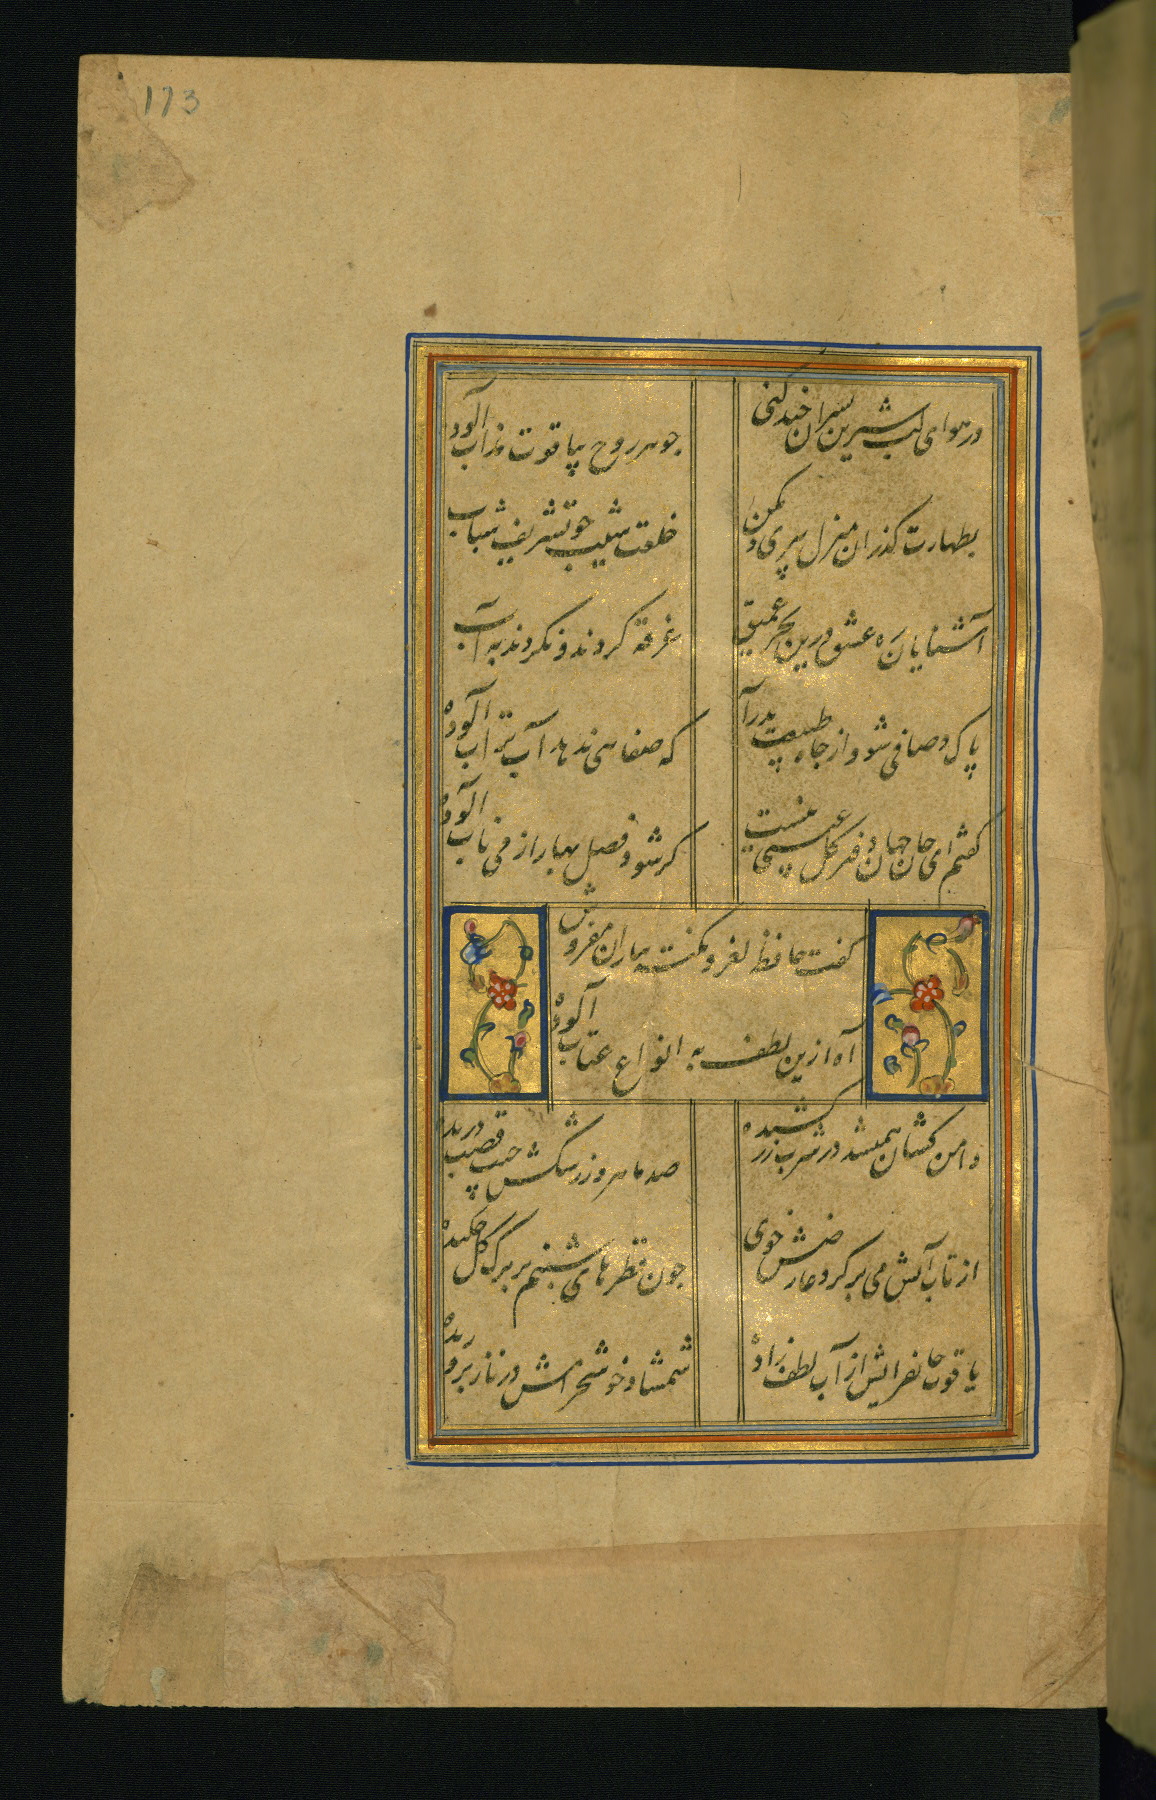 173
در هوای لب شیرین پسران چند کنی
جوهر روح بیاقوت مذاب آلوده
بطهارت گذران منزل پیری و مکن
خلعت شیب چو تشریف شباب آلوده
آشنایان ره عشق درین بحر عمیق
غرقه کردند و نکردند به آب آلوده
پاک و صافی شو و از چاه طبیعت بدر آ
که صفایی ندهد آب تراب آلوده
گفتم ای جان جهان دفتر گل عیبی نیست
کر شود فصل بهار از می ناب آلوده
گفت حافظ لغز و نکته بیاران مفروش
آه ازین لطف به انواع عتاب آلوده
دامن کشان همی شد در شرب زر کشیده
صد ماهرو ز رشکش جیب قصب دریده
از تاب آتش می بر گرد عارضش خوی
چون قطرهای شبنم بر برگ گل چکیده
یاقوت جانفزایش از آب لطف زاده
شمشاد خوش خرامش در ناز پروریده